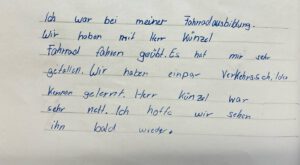 Ich war bei meiner Fahrradausbildung.
Wir haben mit Herr Künzel
Fahrrad fahren geübt. Es hat mir sehr
gefallen. Wir haben einpar Verkehrssch
kennen gelernt. Herr Künzel war
sehr nett. Ich hoffe wir sehen
ihn bald wieder.